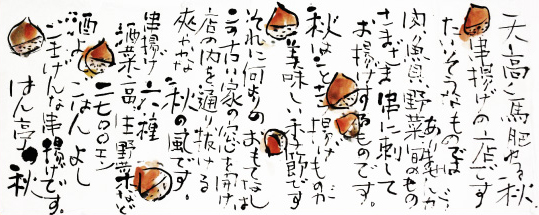 天高く馬肥ゆる秋
串揚げの店です
たいそうなものでは
ありませんが
肉、魚貝、野菜、旬のもの
さまざま串に刺して
お揚げするものです。
秋はことに揚げものが
美味しい季節です
それに何よりのおもてなしは
この古い家の窓を開け
店の内を通り抜ける
爽やかな秋の風です。
串揚げ六種
酒菜二高、生野菜など
二七〇〇エン
酒よし、ごはんよし
ごきげんな串揚げです。
はん亭の秋